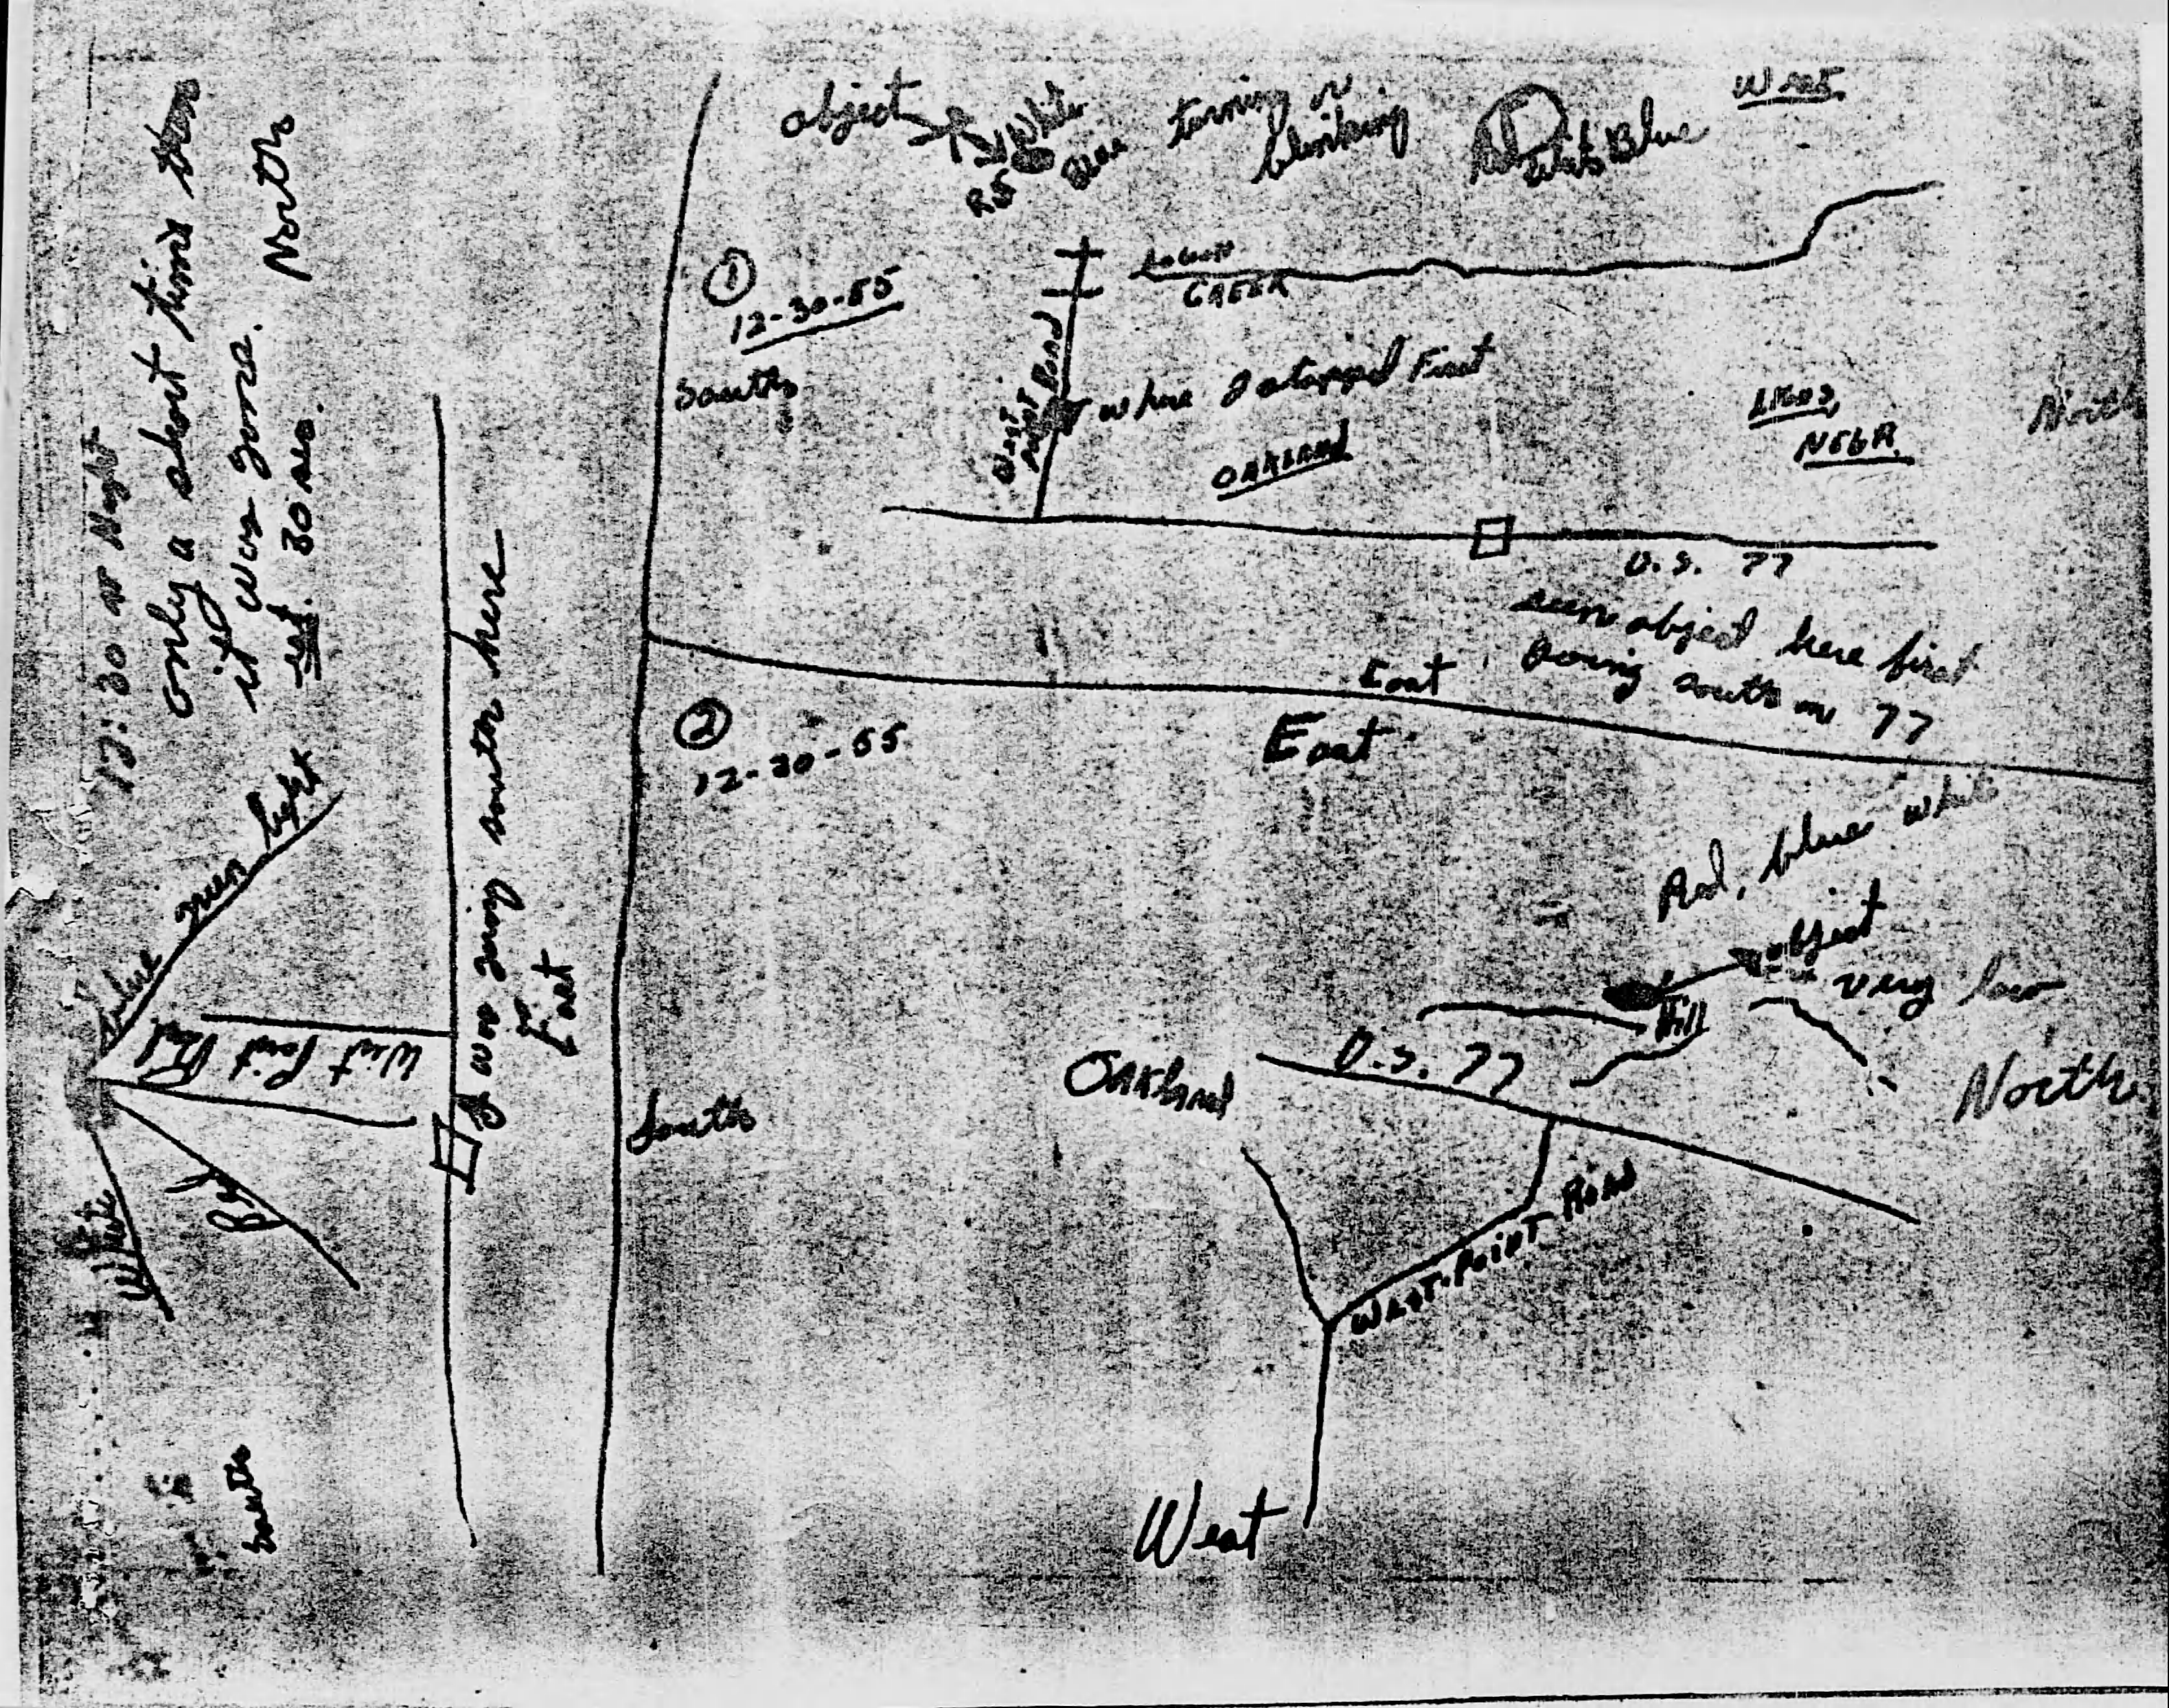 object
White
Blue
turning or
blinking
White Blue
West
①
12-30-55
South
CREEK
West
Point Road
where I stopped First
OAKLAND
NEBR.
North
U.S. 77
seen object here first
Going south on 77
East
②
12-30-55
East
Red, blue white
object
very low
Hill
U.S. 77
Oakland
North
South
West Point Road
West
only a short time then
it was gone.
30 sec.
North
:30 at Night
green light
West Point Rd.
White
I was going south here
East
South